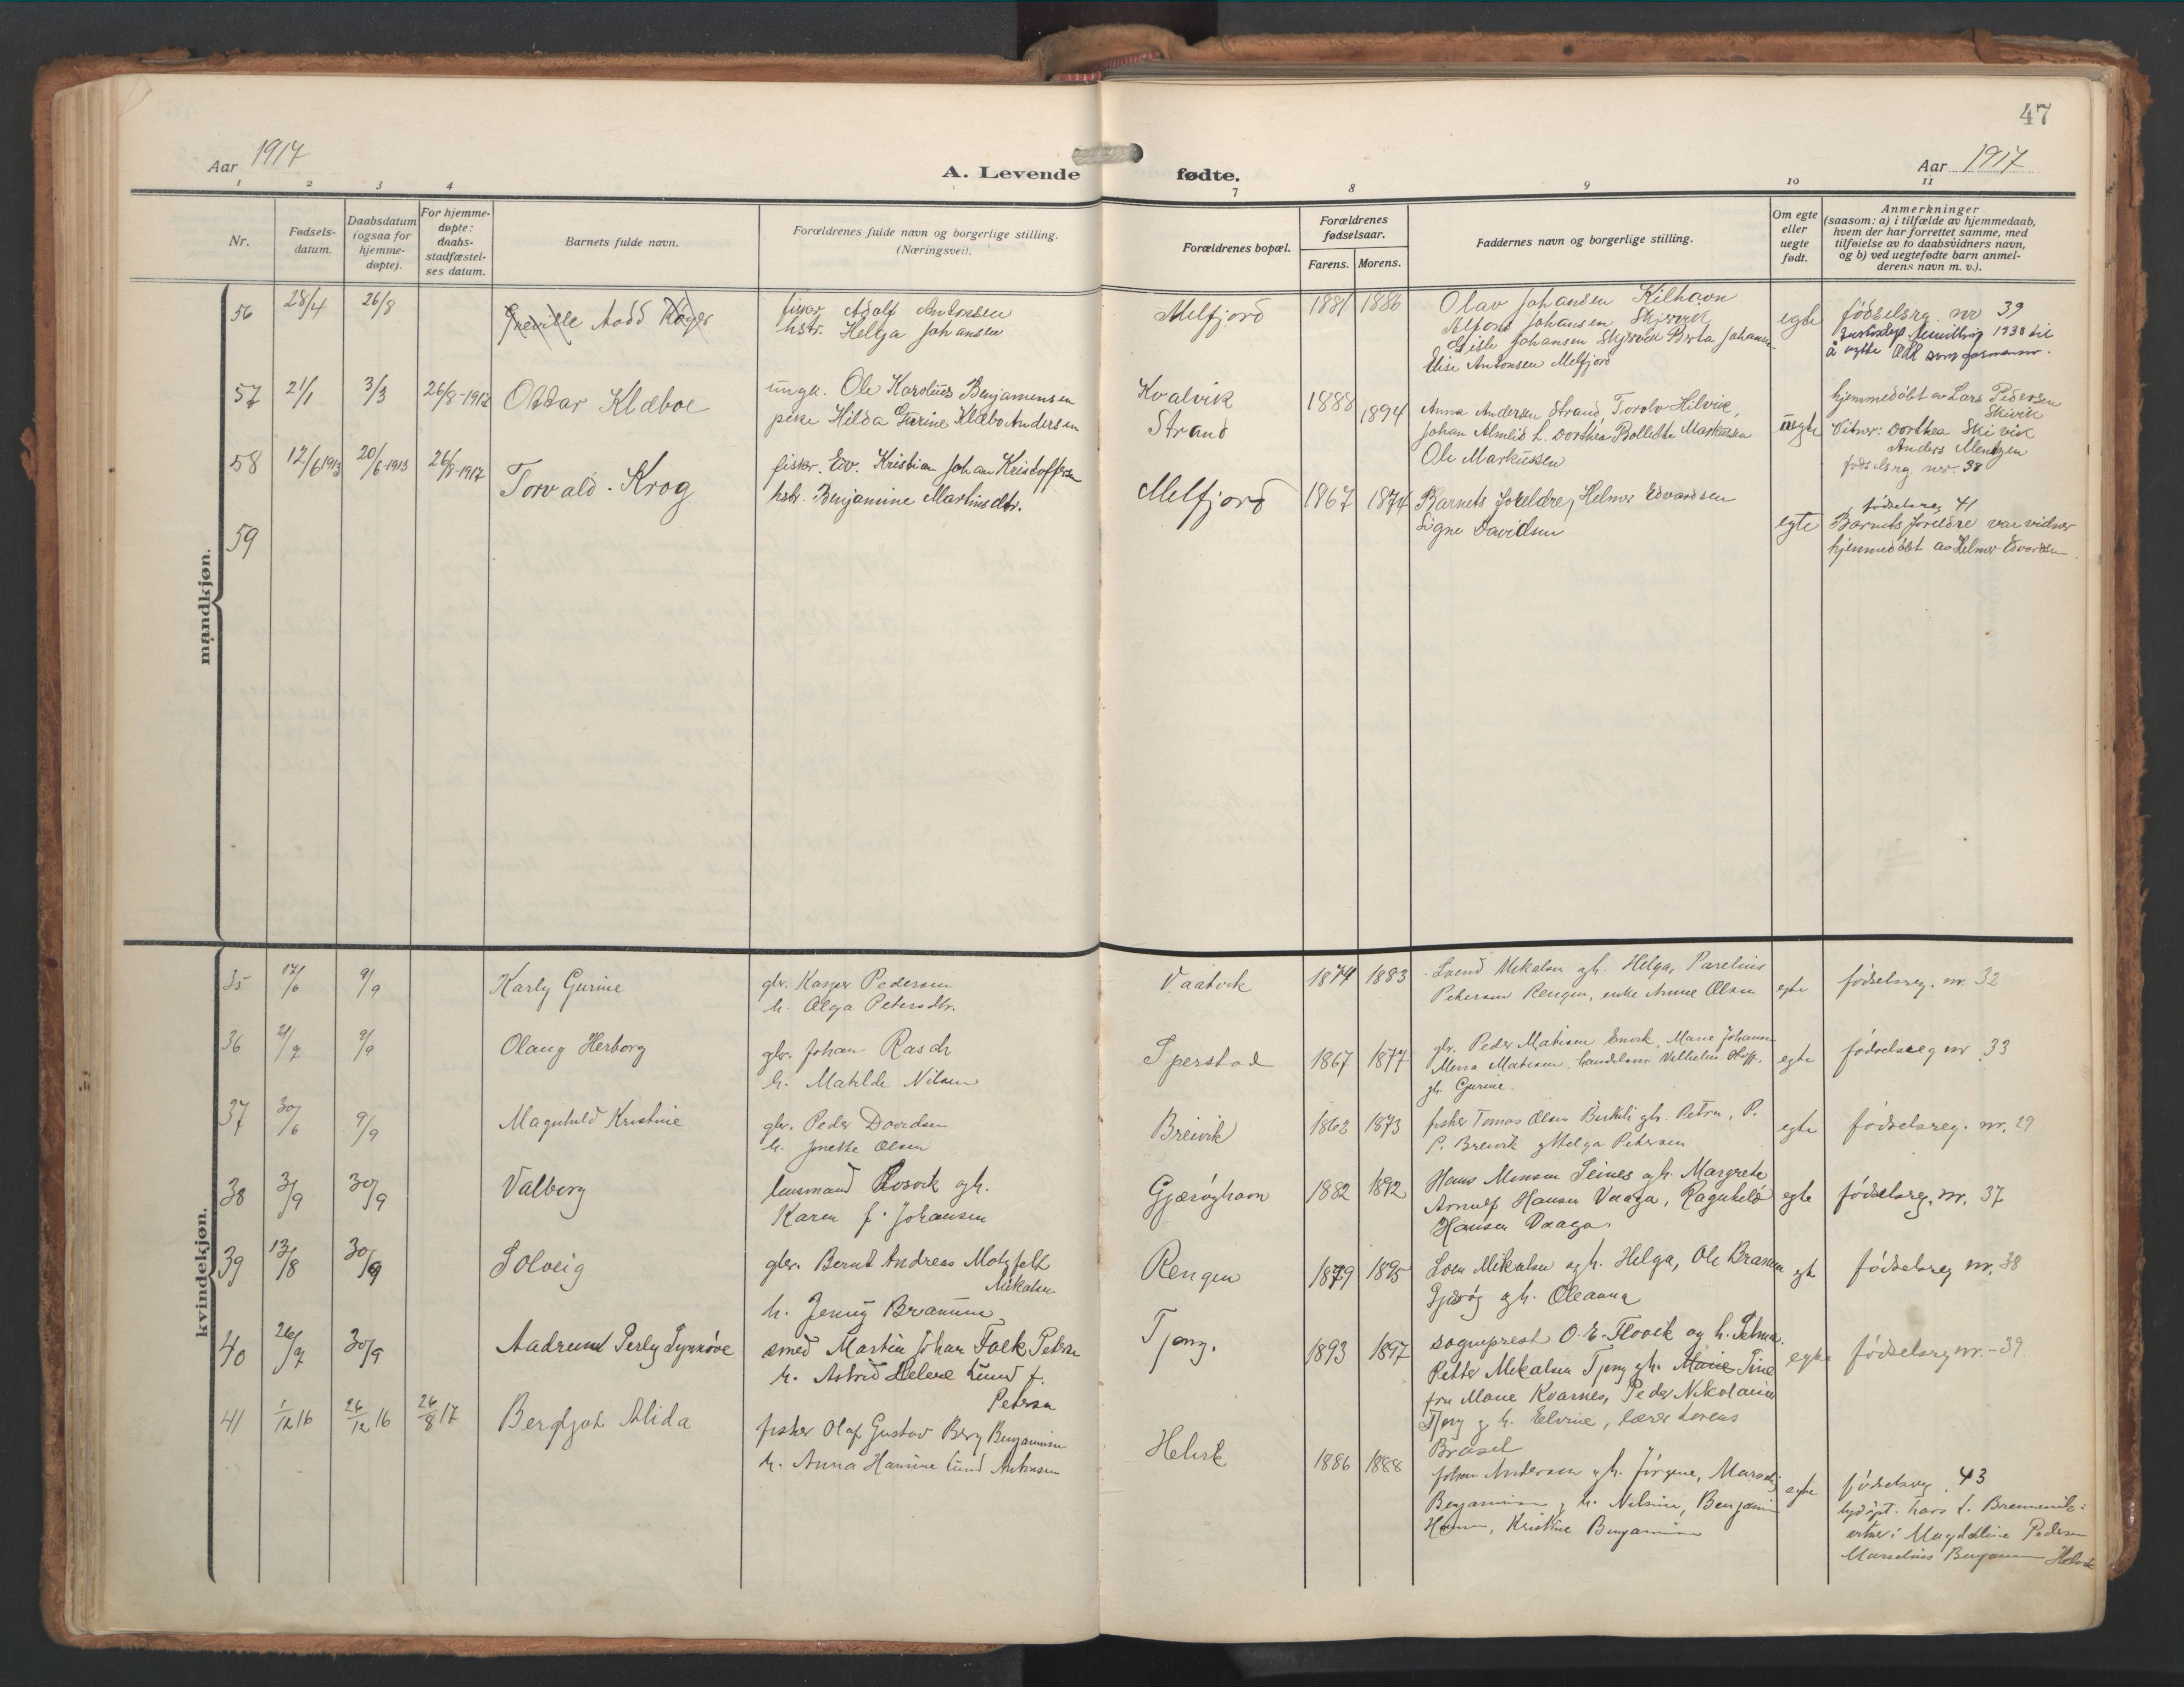 47
Aar 1917
A. Levende fødte.
Aar 1917
1 2 3 4 7 8 9 10 11
Nr.
Fødsels-
datum.
Daabsdatum
(ogsaa for
hjemme-
døpte).
For hjemme-
døpte:
daabs-
stadfæstel-
ses datum.
Barnets fulde navn.
Forældrenes fulde navn og borgerlige stilling.
(Næringsvei).
Forældrenes bopæl.
Forældrenes
fødselsaar.
Farens. Morens.
Faddernes navn og borgerlige stilling.
Om egte
eller
uegte
født.
Anmerkninger
(saasom: a) i tilfælde av hjemmedaab,
hvem der har forrettet samme, med
tilføielse av to daabsvidners navn,
og b) ved uegtefødte barn anmel-
derens navn m. v.).
mandkjøn.
56 28/4 26/8 Greville Aodd
fisker Adolf Antonsen
hstr. Helga Johansen
Melfjord 1881 1886
Olav Johansen Kilhavn
Alfons Johansen Skjervik
Gisle Johansen Skjervik Berta Johansen
Elise Antonsen Melfjord
egte
fødselsrg. nr 39
1938 til
57 21/1 3/3 26/8-1917 Oddar Klæboe
ungk. Ole Karolius Benjamensen
pike Hilda Gurine Klæbo Andersen
Kvalvik
Strand
1888 1894
Anna Andersen Strand, Torolv Hilvik,
Johan Almlid h. Dorthea Bolletta Markussen
Ole Markussen
uegte
hjemmedøbt av Lars Pedersen
Skivik
Vitner: Dorthea Skivik
Anders Mentzen
fødselsrg. nr. 38
58 12/6 1913 20/6-1913 26/8-1917 Torvald Krog
fisker. Edv. Kristian Johan Kristoffersen
hstr. Benjamine Martinsdtr.
Melfjord 1867 1874
Barnets foreldre, Helmer Edvardsen
Signe Davidsen
egte
fødselsreg 41
Barnets foreldre var vidner
hjemmedøbt av Helmer Edvardsen
59
kvindekjøn.
35 17/6 9/9 Karly Gurine
gbr. Kasper Pedersen
h. Olga Petersdtr.
Vaatvik 1874 1883
Svend Mikalsen og h. Helga, Parelius
Petersen Rengen, enke Anne Olsen
egte
fødselsreg. nr. 32
36 21/7 9/9 Olaug Herborg
gbr. Johan Rasch
h. Matilde Nilsen
Sperstad 1867 1877
gbr. Peder Matisen, Marie Johansen
Mena Matisen, handelsm. Vilhelm Hoff.
gh. Gurine.
egte
fødselsreg nr 33
37 30/6 9/9 Magnhild Kristine
gbr. Peder Davidsen
h. Jonette Olsen
Breivik 1863 1873
fisker Tomas Olsen gh. Petra, P.
P. Breivik Helga Petersen
egte
fødselsreg. nr. 29
38 3/9 30/9 Valborg
lensmand Rosvik gh.
Karen f. Johansen
Gjærøyhavn 1882 1892
Hans Monsen Seines gh. Margrete
Arnulf Hansen Vaaga, Ragnhild
Hansen Vaaga.
egte
fødselsreg. nr. 37
39 13/8 30/9 Solveig
gbr. Bernt Andreas Motzfelt
Mikalsen
h. Jenny
Rengen 1879 1895
Sven Mikalsen og h. Helga, Ole
Gjærøy gh. Oleanna
egte
fødselsreg nr. 38
40 26/7 30/9 Aadrund Perly Synnøve
smed Martin Johan Falk Petersen
h. Astrid Helene Lund f.
Petersen
Tjong. 1893 1897
sogneprest O. E. Flovik og h. Selma.
Petter Mikalsen Tjong gh. Marie Tine
fru Marie Kvarnes, Peder Nikolaisen
Tjong g h. Elvine, lærer Lorens
Brasel
egte
fødselsrg nr.-39.
41 1/12 16 26/12 16 26/8 17 Bergljot Alida
fisker Olaf Gustav Berg Benjaminsen
h. Anna Hansine Lund Antonsen
Helvik 1886 1888
Johan Andersen g h. Jørgine,
Benjaminsen g h. Nilsine, Benjamin
Hansen, Kristine Benjaminsen
egte
fødselsreg. 43
Magdeline Pedersen
Marselius Helvik